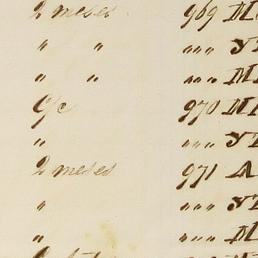 2 meses 969 M
" " """ Y
" " """ M
C/c 970 M
" """ Y
2 meses 971 A
" """ Y
" """ M